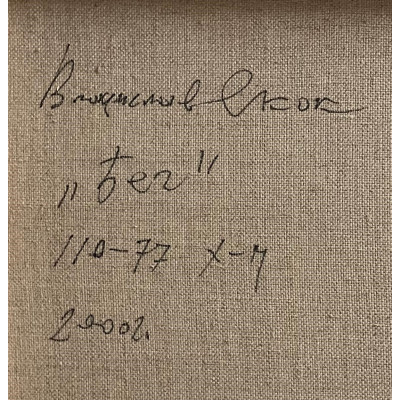 Владислав Скок
„Бег"
110-77 х-м
2000г.